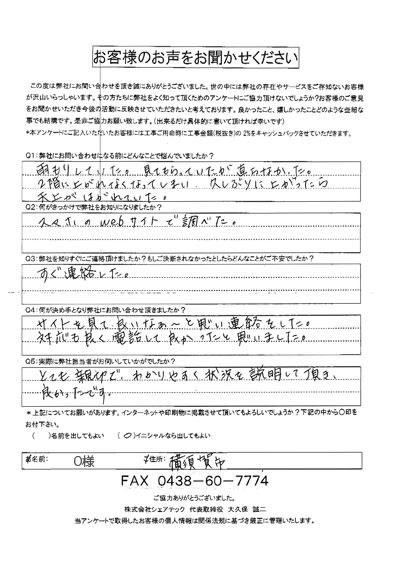 お客様のお声をお聞かせください
この度は弊社にお問い合わせを頂き誠にありがとうございました。世の中には弊社の存在やサービスをご存知ないお客様
が沢山いらっしゃいます。その方たちに弊社をよく知って頂くためのアンケートにご協力頂けないでしょうか?お客様のご意見
をお聞かせいただき今後の活動に反映させていただきたいと考えております。良かったこと、嬉しかったことどのような些細な
事でも結構です。是非ご協力お願い致します。(出来るだけ具体的に書いて頂ければ幸いです)
*本アンケートにご記入いただいたお客様には工事ご用命時に工事金額(税抜き)の2%をキャッシュバックさせていただきます。
Q1:弊社にお問い合わせになる前にどんなことで悩んでいましたか?
雨もりしていた。見てもらっていたが直らなかった。
2階に上がれなくなってしまい、久しぶりに上がったら
天上がはがれていた。
Q2:何がきっかけで弊社をお知りになりましたか?
スマホのwebサイトで調べた。
Q3:弊社を知りすぐにご連絡頂けますか?もしご決断されなかったとしたらどんなことがご不安でしたか?
すぐ連絡した。
Q4:何が決め手となり弊社にお問い合わせ頂きましたか?
サイトを見て良いなぁ〜と思い連絡をした。
対応も良く電話して良かったと思いました。
Q5:実際に弊社担当者がお伺いしていかがでしたか?
とても親切で、わかりやすく状況を説明して頂き、
良かったです。
*上記についてお願いがあります。インターネットや印刷物に掲載させて頂いてもよろしいでしょうか?下記の中から〇印を
お付下さい。
( )名前を出してもよい (〇)イニシャルなら出してもよい
お名前: O様 ご住所: 横須賀市
FAX 0438-60-7774
ご協力ありがとうございました。
株式会社シェアテック 代表取締役 大久保 誠二
当アンケートで取得したお客様の個人情報は関係法規に基づき厳正に管理いたします。